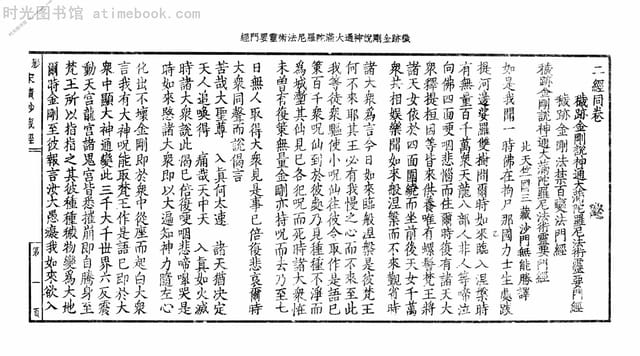 时光图书馆 - atimebook.com
穢跡金剛說神通大滿陀羅尼法術靈要門經
二經同卷
穢跡金剛說神通大滿陀羅尼法術靈要門經
穢跡金剛法禁百變法門經
穢跡金剛說神通大滿陀羅尼法術靈要門經
北天竺國三藏沙門無能勝譯
如是我聞一時佛在拘尸那國力士生處跋
提河邊娑羅雙樹間爾時如來臨入涅槃時
有無量百千萬衆天龍八部人非人等啼泣
向佛四面哽咽悲惱而住爾時復有諸天大
衆釋提桓因等皆來供養唯有螺髻梵王將
諸天女依於四面圍繞而坐前後天女千萬
衆共相娛樂聞如來般涅槃而不來覲省時
諸大衆為言今日如來臨般涅槃是彼梵王
何不來耶其王必有我慢之心而不來至此
我等徒衆驅使小呪仙往彼令取作是語已
策百千衆呪仙到於彼處乃見種種不淨而
為城塹其仙見已各犯呪而死時諸大衆恠
未曾有復策無量金剛亦持呪而去乃至七
日無人取得大衆見是事已倍復悲哀爾時
大衆同聲而說偈言
苦哉大聖尊 入真何太速 諸天猶決定
天人追喚得 痛哉天中天 入真如火滅
時諸大衆說此偈已倍復哽咽悲啼嘷哭是
時如來愍諸大衆即以大遍知神力隨左心
化出不壞金剛即於衆中從座而起白大衆
言我有大神呪能取梵王作是語已即於大
衆中顯大神通變此三千大千世界六反震
動天宮龍宮諸鬼宮皆悉摧崩即自騰身至
梵王所以指指之其彼種種穢物變為大地
爾時金剛至彼報言汝大愚癡我如來欲入
影宋磧砂藏經
第一頁